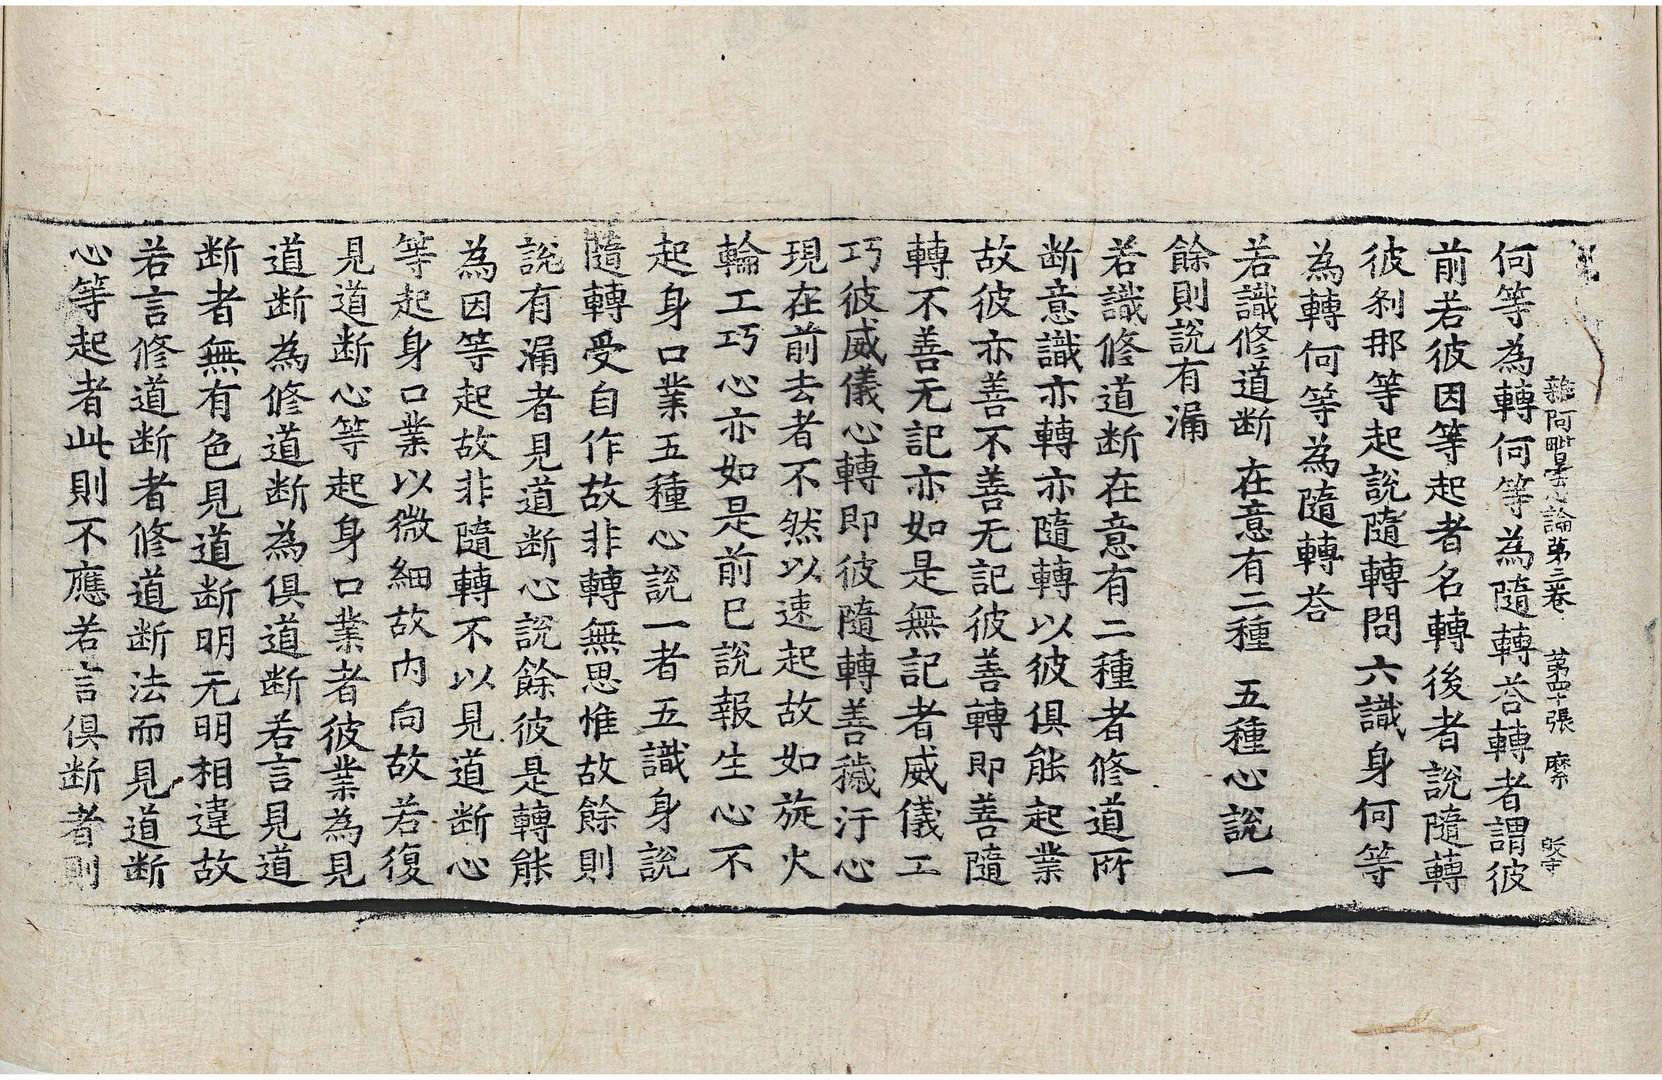 雜阿毗曇心論第三卷 第四十張 縻
何等為轉何等為隨轉荅轉者謂彼
前若彼因等起者名轉後者說隨轉
彼剎那等起說隨轉問六識身何等
為轉何等為隨轉荅
若識修道断 在意有二種 五種心說一
餘則說有漏
若識修道断在意有二種者修道所
断意識亦轉亦隨轉以彼俱能起業
故彼亦善不善无記彼善轉即善隨
轉不善无記亦如是無記者威儀工
巧彼威儀心轉即彼隨轉善穢汙心
現在前去者不然以速起故如旋火
輪工巧心亦如是前已說報生心不
起身口業五種心說一者五識身說
隨轉受自作故非轉無思惟故餘則
說有漏者見道断心說餘彼是轉能
為因等起故非隨轉不以見道断心
等起身口業以微細故內向故若復
見道断心等起身口業者彼業為見
道断為修道断為俱道断若言見道
断者無有色見道断明无明相違故
若言修道断者修道断法而見道断
心等起者此則不應若言俱断者則